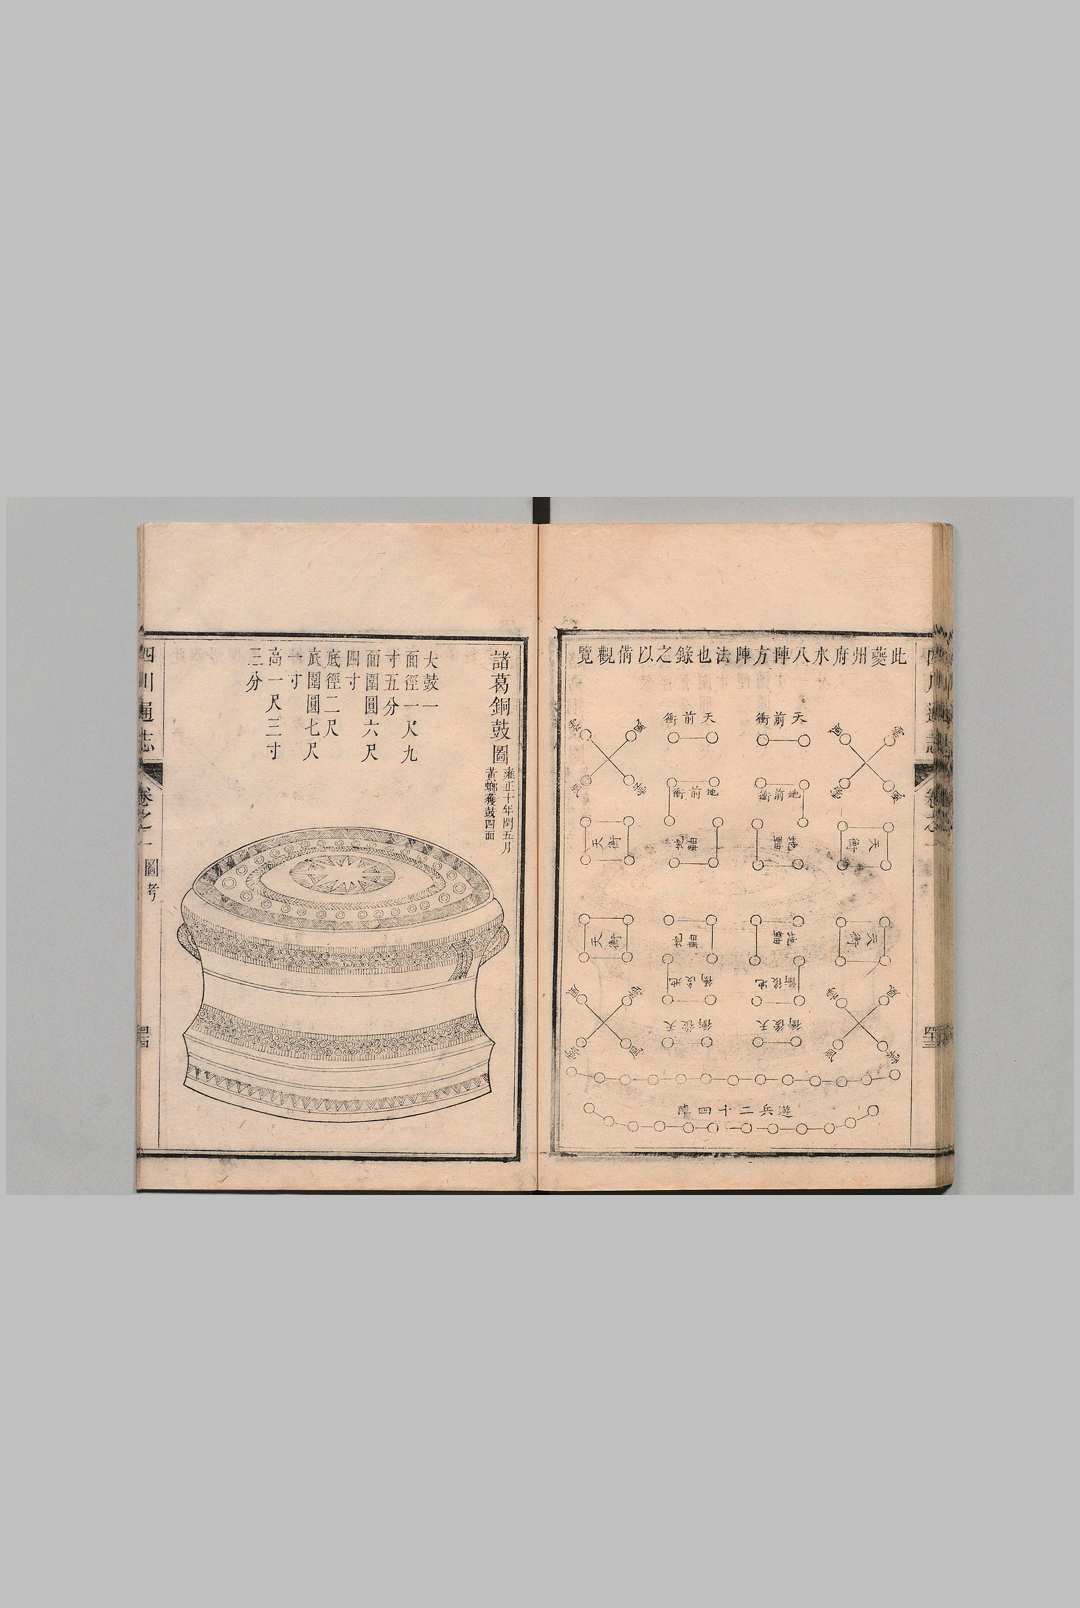 此夔州府水八陣方陣法也錄之以俻觀覽
天前衝
天前衝
地前衝
地前衝
天衝
天衝
天衝
天衝
地後衝
地後衝
天後衝
天後衝
遊兵二十四陣
諸葛銅鼓圖
雍正十年閏五月
獲鼓四面
大鼓一
面徑一尺九
寸五分
面圍圓六尺
四寸
底徑二尺
底圍圓七尺
一寸
高一尺三寸
三分
四川通志
卷之一
圖考